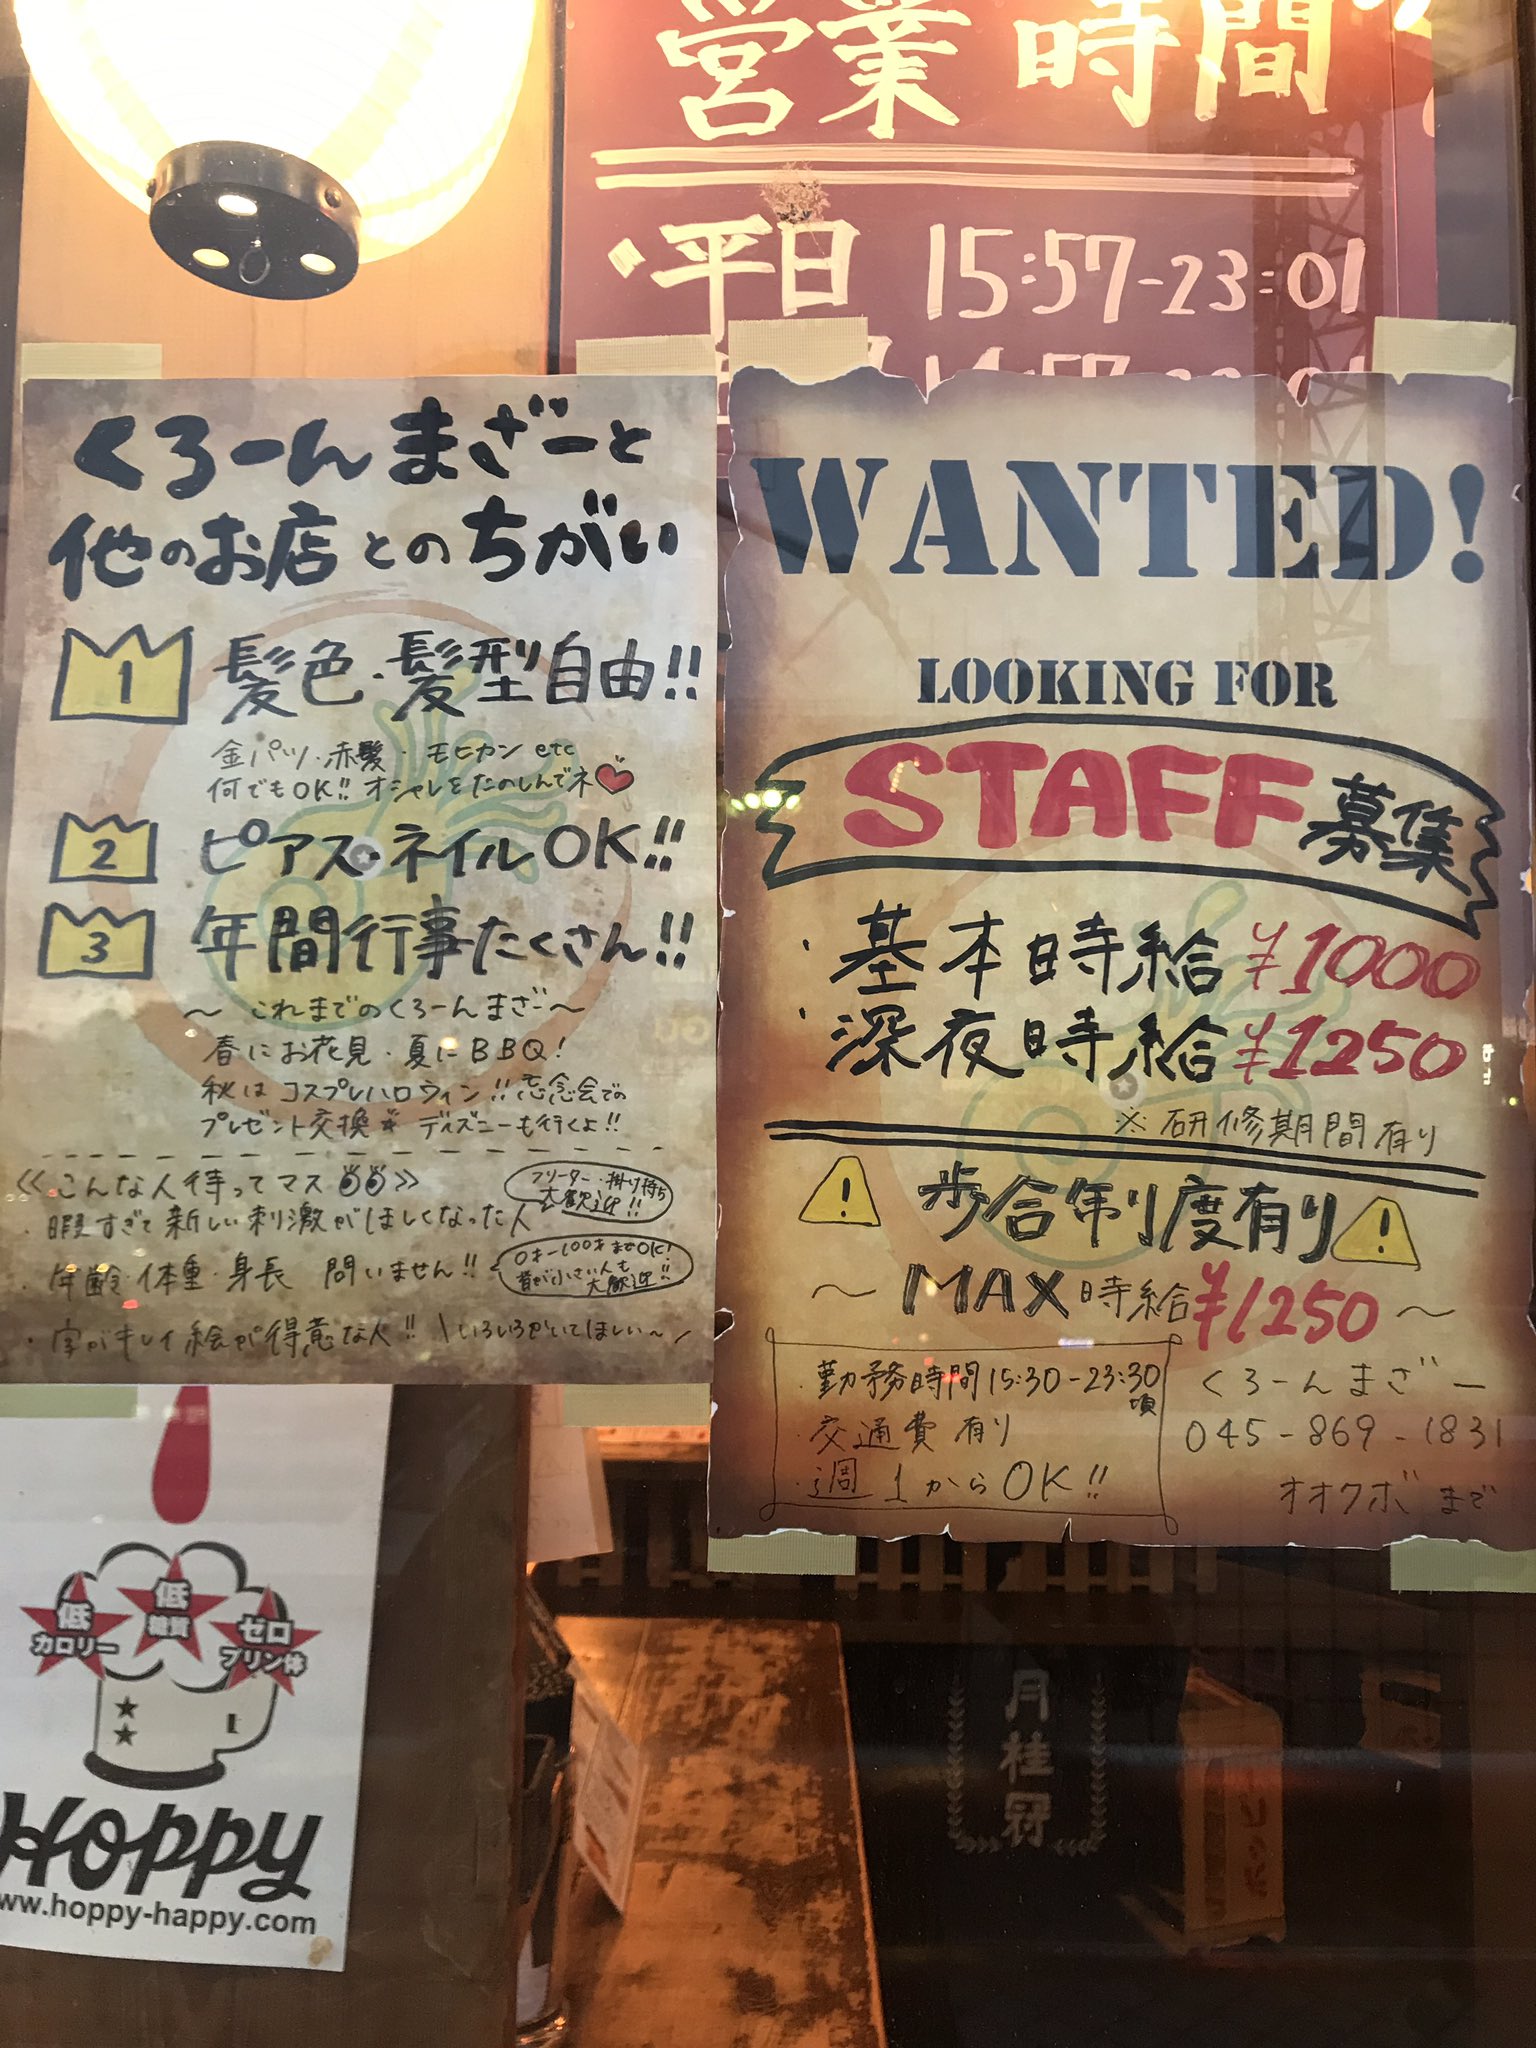 営業時間
・平日 15:57-23:01
くろーんまざーと
他のお店とのちがい
1 髪色・髪型自由!!
金パツ・赤髪・モヒカン etc
何でもOK!! オシャレをたのしんでネ♡
2 ピアス・ネイルOK!!
3 年間行事たくさん!!
〜 これまでのくろーんまざー〜
春にお花見・夏にBBQ!
秋はコスプレハロウィン!! 忘念会での
プレゼント交換 ディズニーも行くよ!!
《こんな人待ってマス》
フリーター・掛け持ち
大歓迎!!
・暇すぎて新しい刺激がほしくなった人
・年齢・体重・身長 問いません!!
0才〜100才までOK!
背が小さい人も
大歓迎!!
・字がキレイ 絵が得意な人!! \いろいろかいてほしい〜/
WANTED!
LOOKING FOR
STAFF募集
・基本時給¥1000
・深夜時給¥1250
※研修期間有り
歩合制度有り
〜MAX時給¥1250〜
・勤務時間15:30-23:30頃
・交通費有り
・週1からOK!!
くろーんまざー
045-869-1831
オオクボまで
低カロリー
低糖質
ゼロプリン体
Hoppy
www.hoppy-happy.com
月桂冠